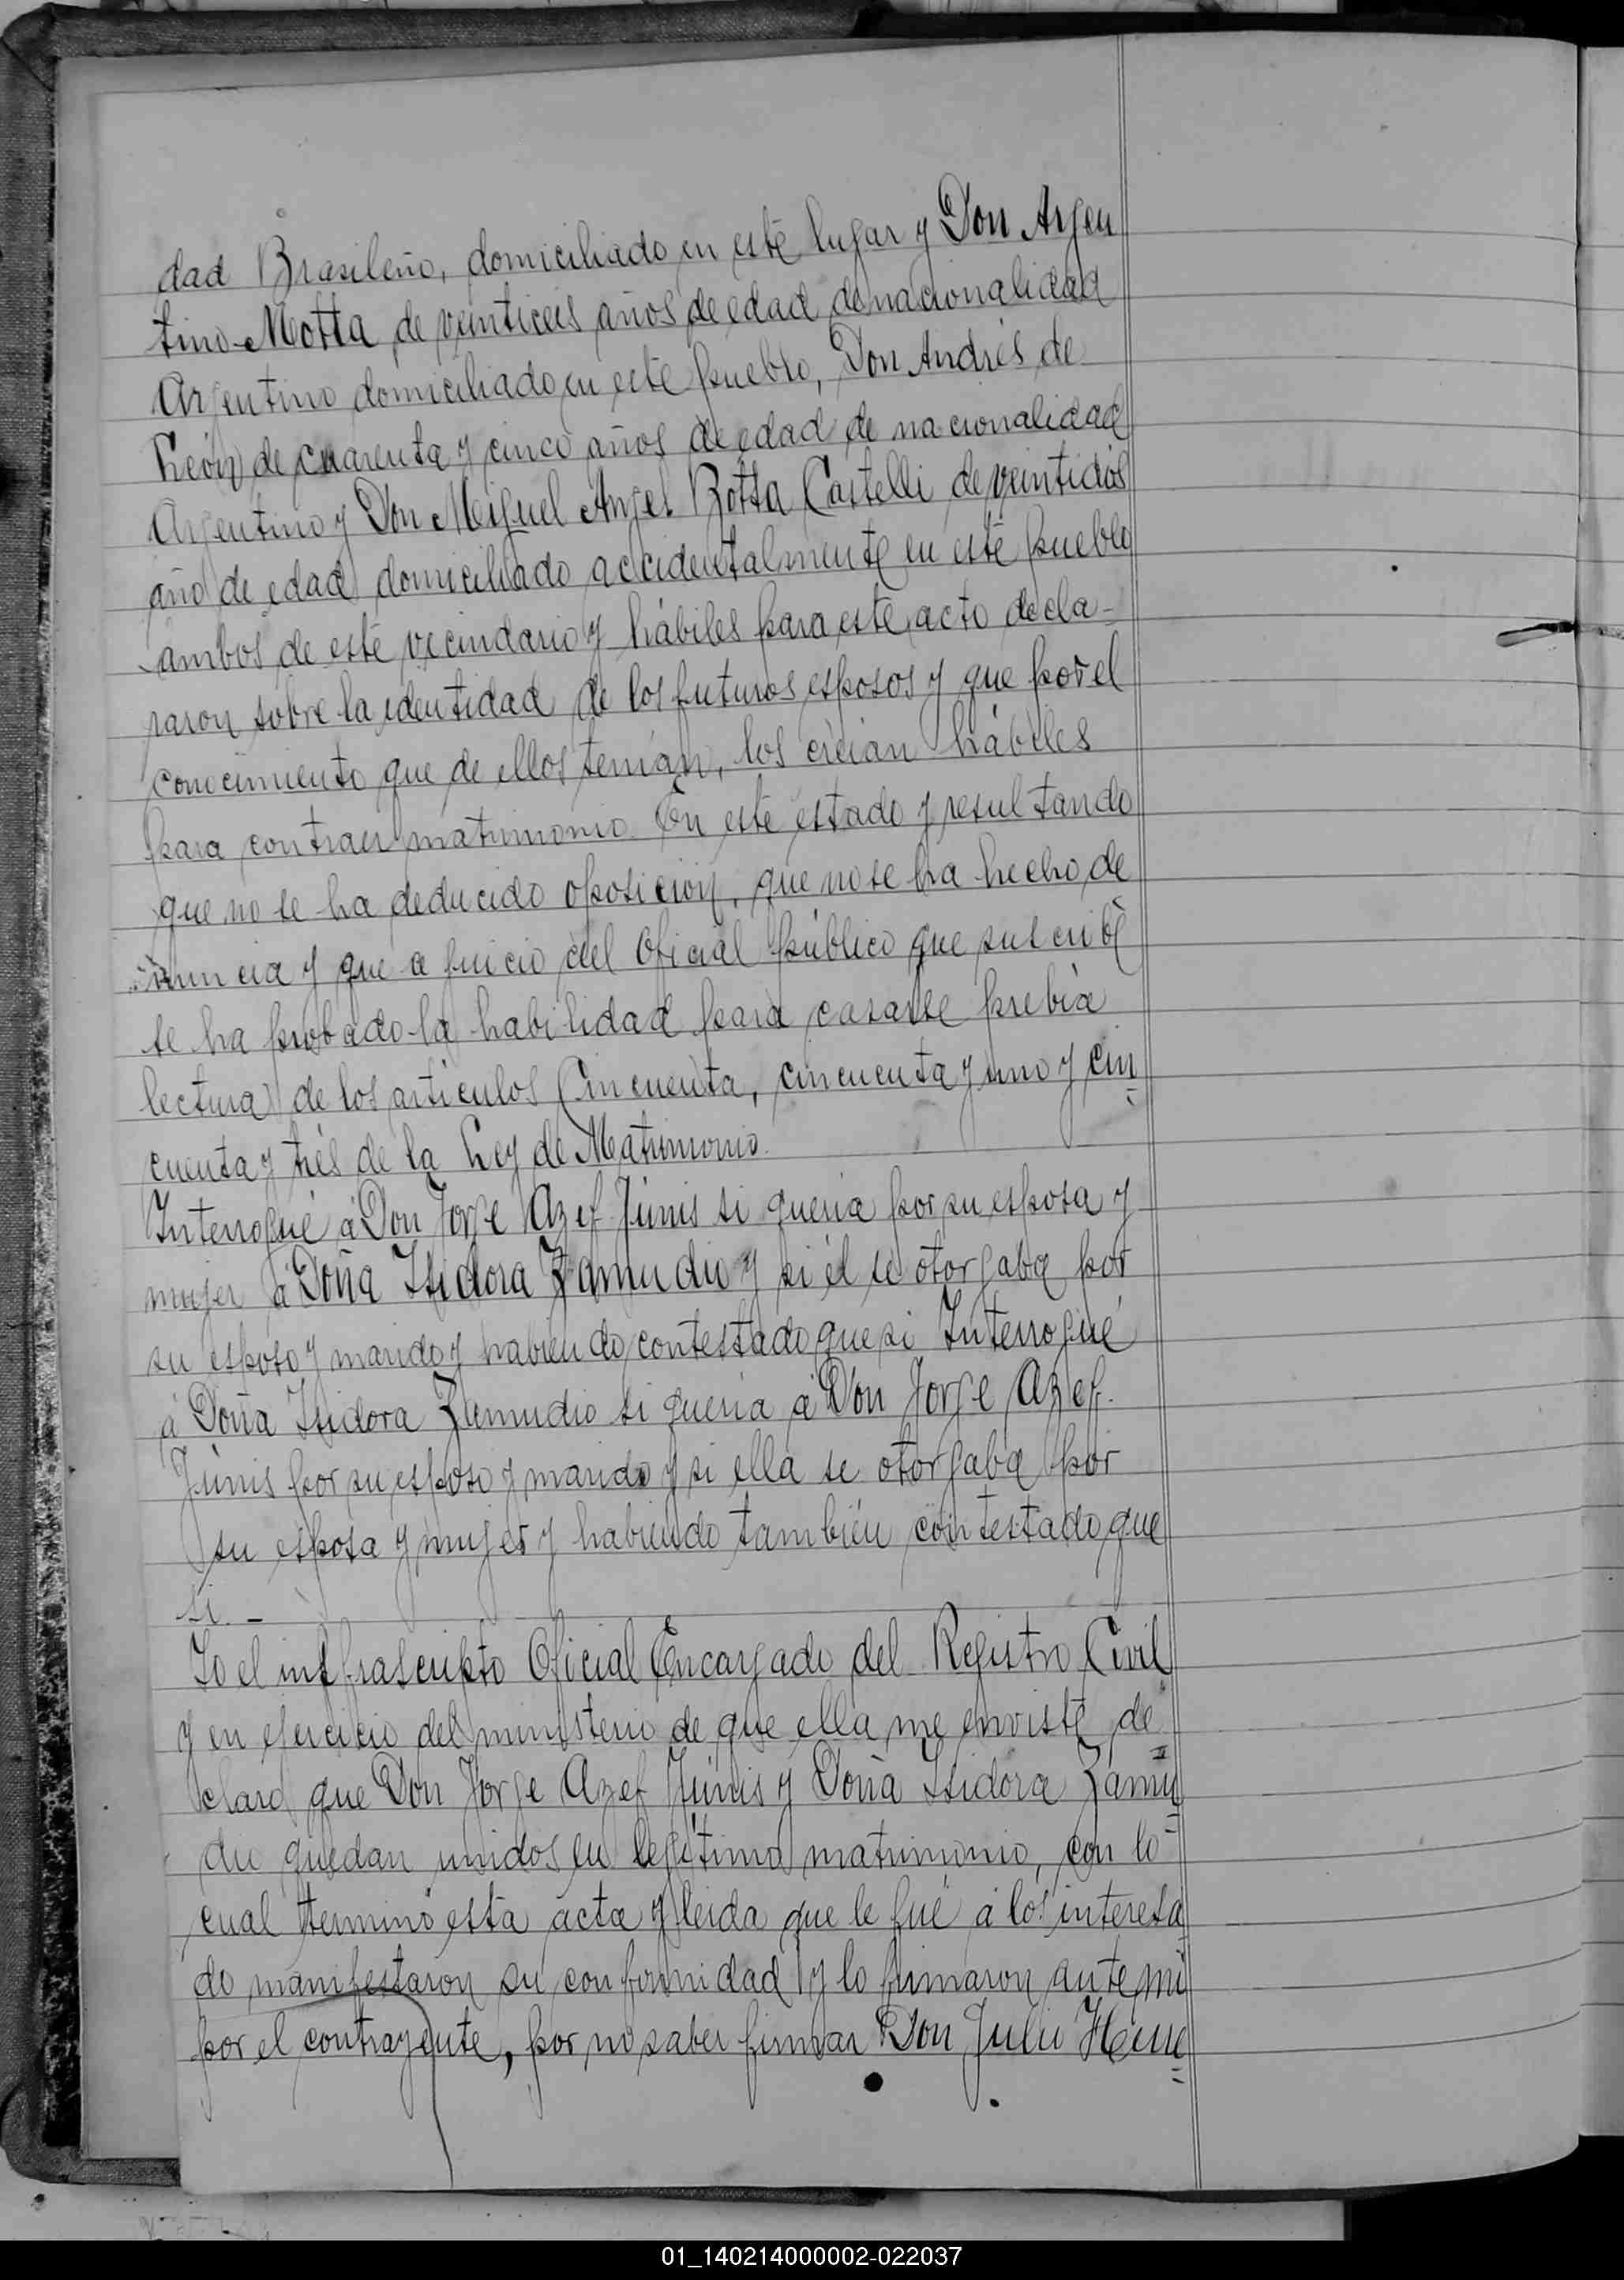 dad Brasileño, domiciliado en este lugar y Don Argen
tino Motta de veinticeis años de edad de nacionalidad
Argentino domiciliado en este pueblo, Don Andrés de
León de cuarenta y cinco años de edad de nacionalidad
Argentino y Don Miguel Angel Botta Castelli de veintidós
año de edad domiciliado accidentalmente en este pueblo
ambos de este vecindario y hábiles para este acto decla-
raron sobre la identidad de los futuros esposos y que por el
conocimiento que de ellos tenían, los creian hábiles
para contraer matrimonio. En este estado y resultando
que no se ha deducido oposicion, que no se ha hecho de
nuncia y que a juicio del Oficial público que suscribe
se ha probado la habilidad para casarse prebia
lectura de los articulos Cincuenta, cincuenta y uno y cin
cuenta y trés de la Ley de Matrimonio.
Interrogué á Don Jorge Azef Júnis si queria por su esposa y
mujer á Doña Isidora Zamudio y si él se otorgaba por
su esposo y marido y habiendo contestado que si Interrogué
á Doña Isidora Zamudio si queria á Don Jorge Azef.
Júnis por su esposo y marido y si ella se otorgaba por
su esposa y mujer y habiendo también contestado que
si. -
Yo el infrascripto Oficial Encargado del Registro Civil
y en ejercicio del ministerio de que ella me enviste de
claro que Don Jorge Azef Júnis y Doña Isidora Zamu
dio quedan unidos en legítimo matrimonio, con lo
cual terminó esta acta y leida que le fué á los interesa
do manifestaron su conformidad y lo firmaron ante mi
por el contrayente, por no saber firmar Don Julio Hem
01_140214000002-022037